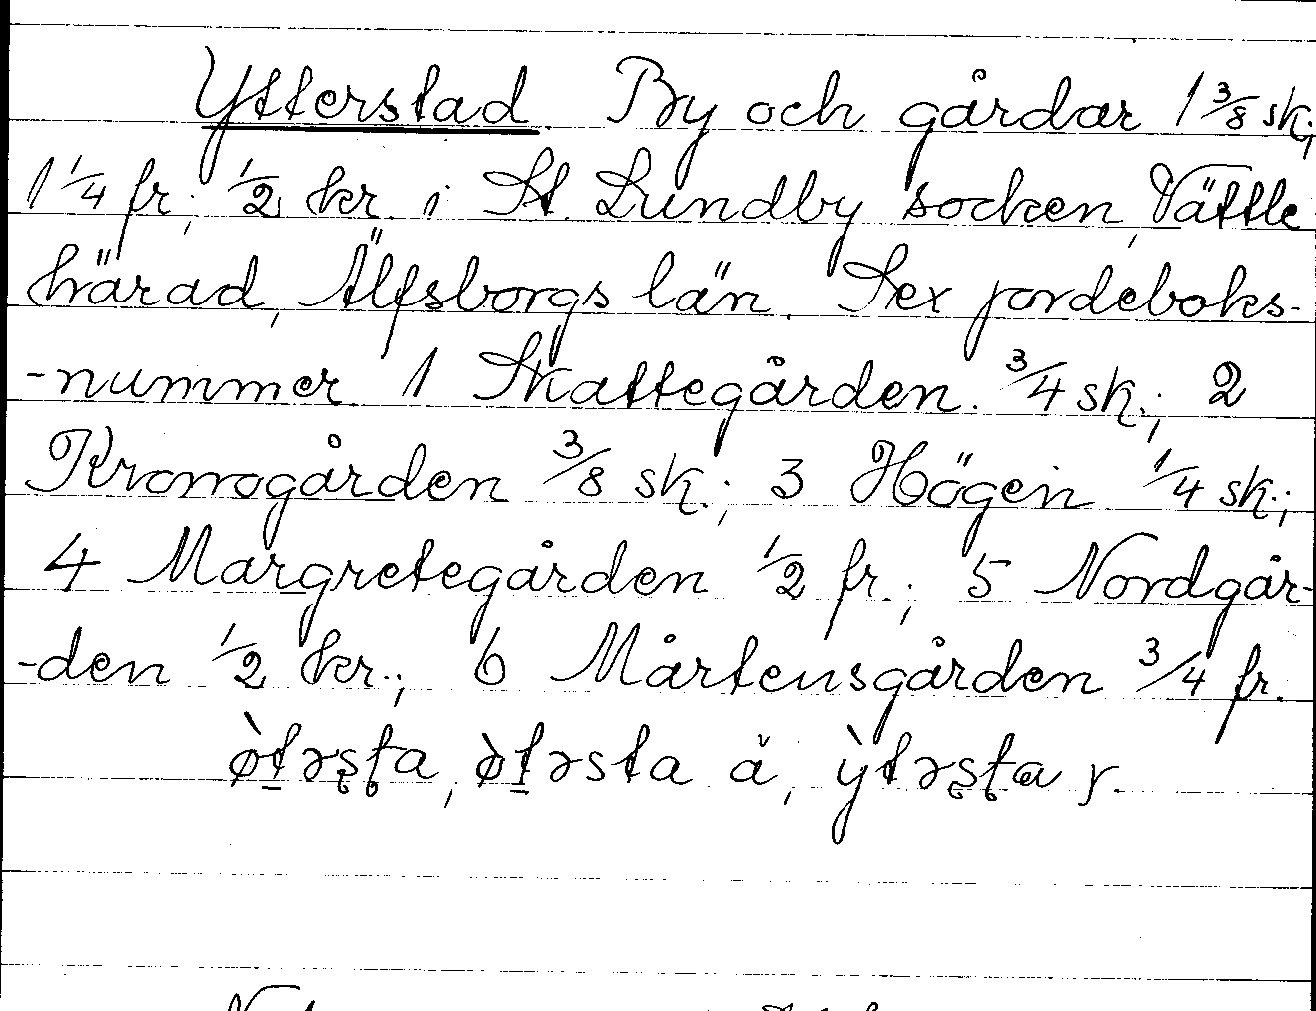 Ytterstad By och gårdar 1 3/8 sk;
1 1/4 fr; 1/2 kr. i St. Lundby socken, Vättle
härad, Älfsborgs län. Sex jordeboks-
-nummer 1 Skattegården. 3/4 sk.; 2
Kronogården 3/8 sk.; 3 Högen 1/4 sk.;
4 Margretegården 1/2 fr.; 5 Nordgår-
-den 1/2 kr.; 6 Mårtensgården 3/4 fr.